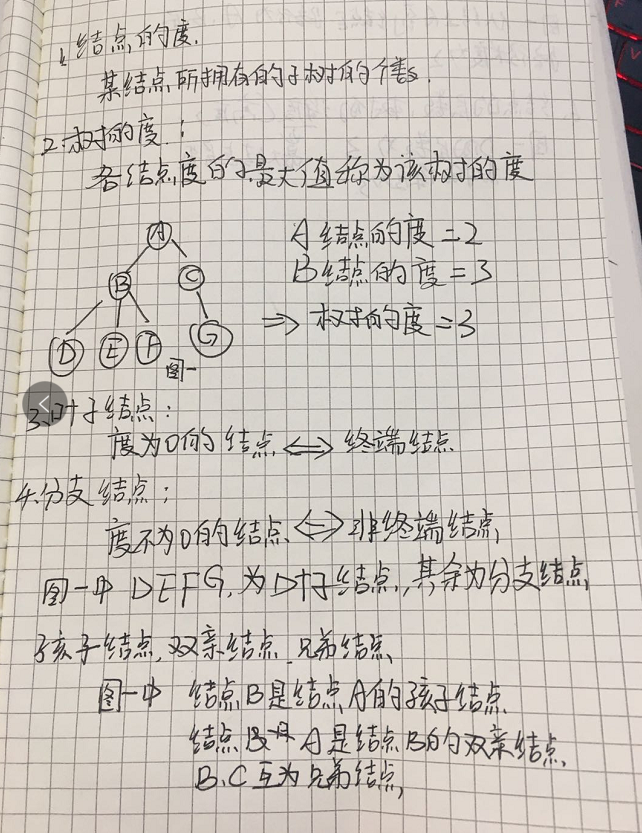 1. 结点的度.
某结点所拥有的子树的个数.
2. 树的度:
各结点度的最大值称为该树的度
A
B
C
D
E
F
G
图一
A结点的度=2
B结点的度=3
=> 树的度=3
3. 叶子结点:
度为0的结点 <=> 终端结点
4. 分支结点:
度不为0的结点 <=> 非终端结点
图一中 DEFG, 为叶子结点, 其余为分支结点
孩子结点, 双亲结点, 兄弟结点
图一中 结点B是结点A的孩子结点
结点 A是结点B的双亲结点
B.C互为兄弟结点